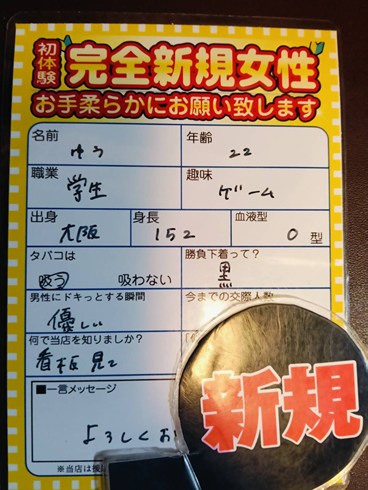 初体験 完全新規女性
お手柔らかにお願い致します
名前 ゆう 年齢 22
職業 学生 趣味 ゲーム
出身 大阪 身長 152 血液型 O 型
タバコは 吸う 吸わない 勝負下着って? 黒
男性にドキっとする瞬間 優しい 今までの交際人数
何で当店を知りましたか? 看板見て
■一言メッセージ
よろしくお
※当店は援
新規